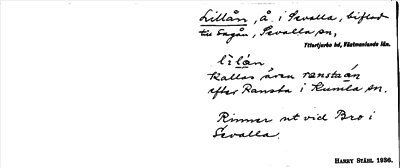 Lillån, å i Sevalla, biflod
till Sagån, Sevalla sn,
Yttertjurbo hd, Västmanlands län.
lìlán
kallas även ranstaán
efter Ransta i Kumla sn.
Rinner ut vid Bro i
Sevalla.
HARRY STÅHL 1936.